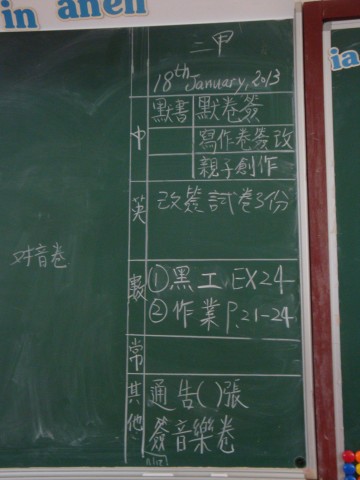 in anell
ia
二甲
18th January, 2013
中 默書 默卷簽
寫作卷簽改
親子創作
英 改簽試卷3份
拼音卷
數 ① 黑工 EX24
② 作業 P.21-24
常
其他 通告( )張
簽音樂卷